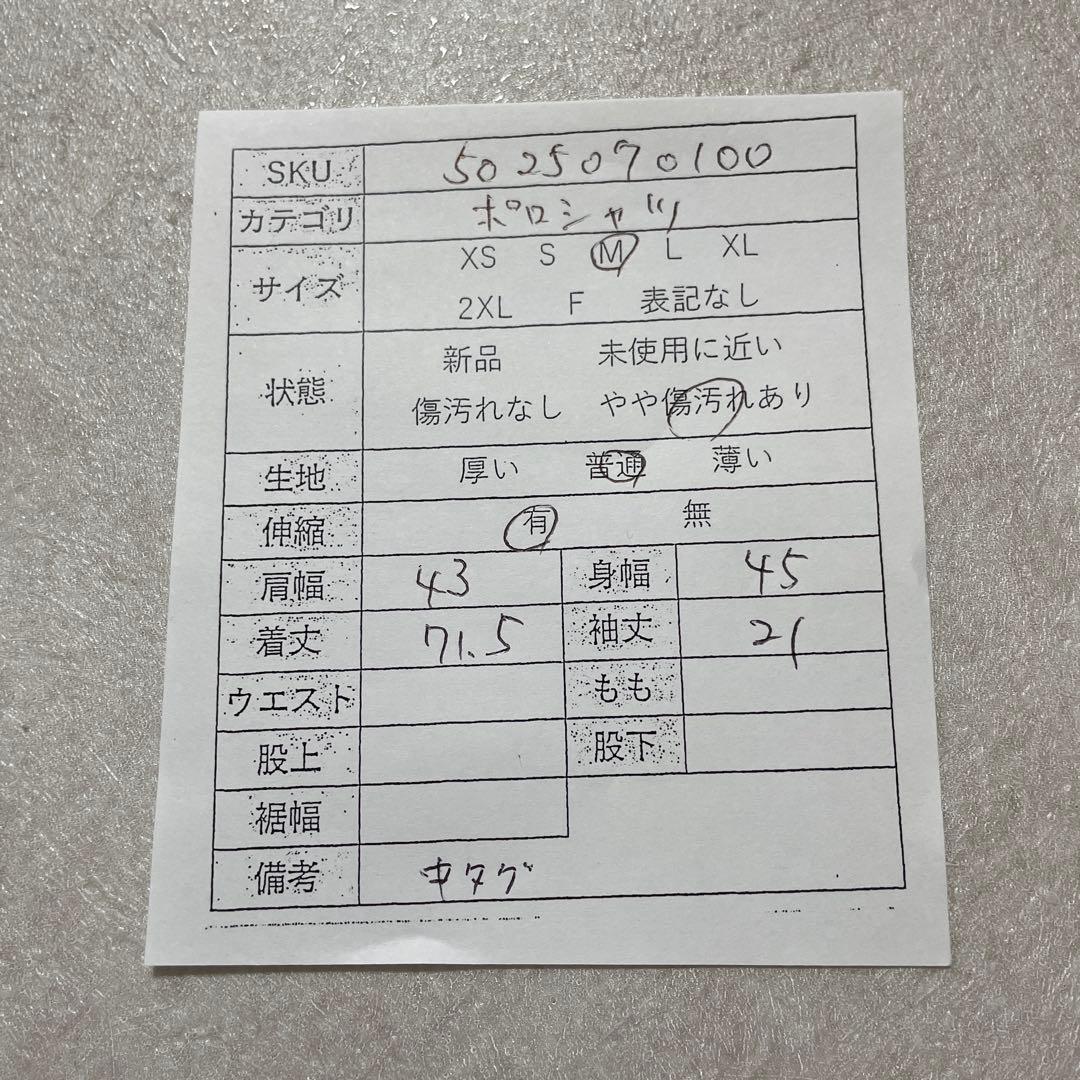 SKU 5025070100
カテゴリ ポロシャツ
サイズ XS S M L XL
2XL F 表記なし
状態 新品 未使用に近い
傷汚れなし やや傷汚れあり
生地 厚い 普通 薄い
伸縮 有 無
肩幅 43 身幅 45
着丈 71.5 袖丈 21
ウエスト もも
股上 股下
裾幅
備考 タグ